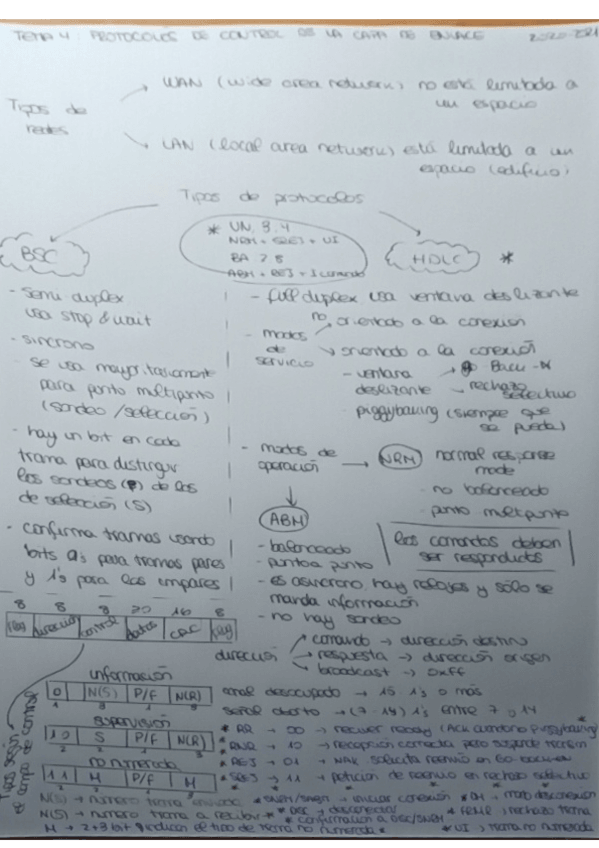 TEMA 4 PROTOCOLOS DE CONTROL DE LA CAPA DE ENLACE 2020-2021
Tipos de redes
→ WAN (wide area network) no está limitada a un espacio
→ LAN (local area network) está limitada a un espacio (edificio)
Tipos de protocolos
BSC
* UN, 3, 4
NRM + SREJ + UI
BA 7 8
ABM + REJ + I comando
HDLC *
- semi duplex
usa stop & wait
- síncrono
- se usa mayoritariamente
para punto multipunto
(sondeo / selección)
- hay un bit en cada
trama para distinguir
los sondeos (P) de los
de selección (S)
- confirma tramas usando
bits 0's para tramas pares
y 1's para las impares
- full duplex usa ventana deslizante
- modos de servicio
no orientado a la conexión
→ orientado a la conexión
- ventana deslizante → go Back-N
→ rechazo selectivo
- piggybacking (siempre que
se pueda)
- modos de operación → NRM normal response
mode
- no balanceado
- punto multipunto
los comandos deben
ser respondidos
ABM
- balanceado
- punto a punto
- es asíncrono, hay relojes y sólo se
manda información
- no hay sondeo
dirección
comando → dirección destino
→ respuesta → dirección origen
broadcast → 0xff
8 8 8 20 16 8
flag dirección control datos CRC flag
Tipos según el campo de control
información
0 N(S) P/F N(R)
1 3 1 3
canal desocupado → 15 1's o más
señal aborto → (7-14) 1's entre 7 y 14
supervisión
1 0 S P/F N(R)
2 2 1 3
* RR → 00 → receiver ready (Ack cuando no piggybacking)
* RNR → 10 → recepción correcta pero suspende transm
* REJ → 01 → NAK solicita reenvío en Go back-N
* SREJ → 11 → petición de reenvío en rechazo selectivo
no numerada
1 1 M P/F M
2 2 1 3
N(S) → número trama enviada * SNRM/SABM → iniciar conexión * DM → modo desconexión
N(S) → número trama a recibir * DISC → desconectar * FRMR → rechazo trama
* confirmación a DISC/SNRM
M → 2+3 bit indican el tipo de trama no numerada * * UI → trama no numerada